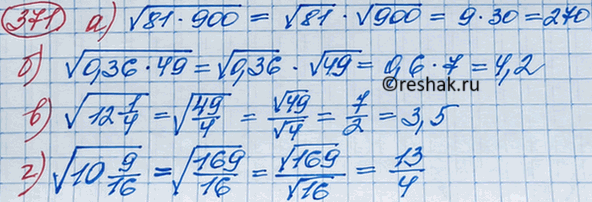 371 а) √(81 · 900) = √81 · √900 = 9 · 30 = 270
б) √(0,36 · 49) = √0,36 · √49 = 0,6 · 7 = 4,2
©reshak.ru
в) √(12 1/4) = √(49/4) = √49/√4 = 7/2 = 3,5
г) √(10 9/16) = √(169/16) = √169/√16 = 13/4